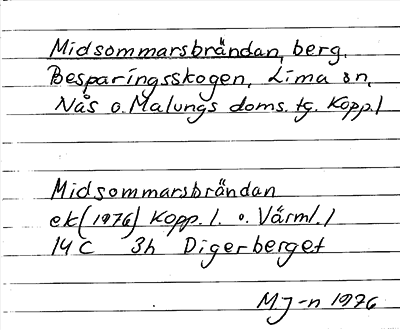 Midsommarsbrändan, berg.
Besparingsskogen, Lima sn,
Nås o. Malungs doms. tg. Kopp. l
Midsommarsbrändan
ek (1976) Kopp. l. o. Värml. l
14 C 3h Digerberget
MJ-n 1976